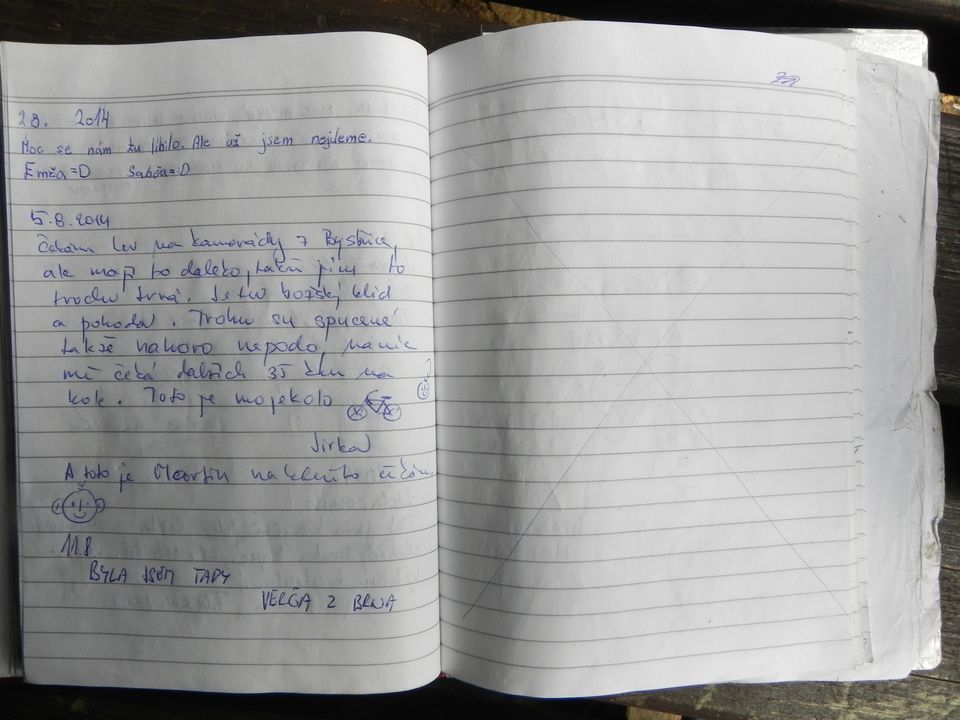 28. 2014
Moc se nám tu líbilo. Ale už jsem nejdeme.
Emža=D Sabča=:D
5.8.2014
Čekám tu na kamarády z Bystřice,
ale mají to daleko, takže jim to
trochu trvá. Je tu božský klid
a pohoda. Trohu su spucené
takže nahoro nepodo, navíc
mě čeká dalších 35 km na
kole. Toto je moje kolo
Jirka
A toto je Martin na kterého čekám.
11.8
BYLA JSEM TADY
VERČA Z BRNA